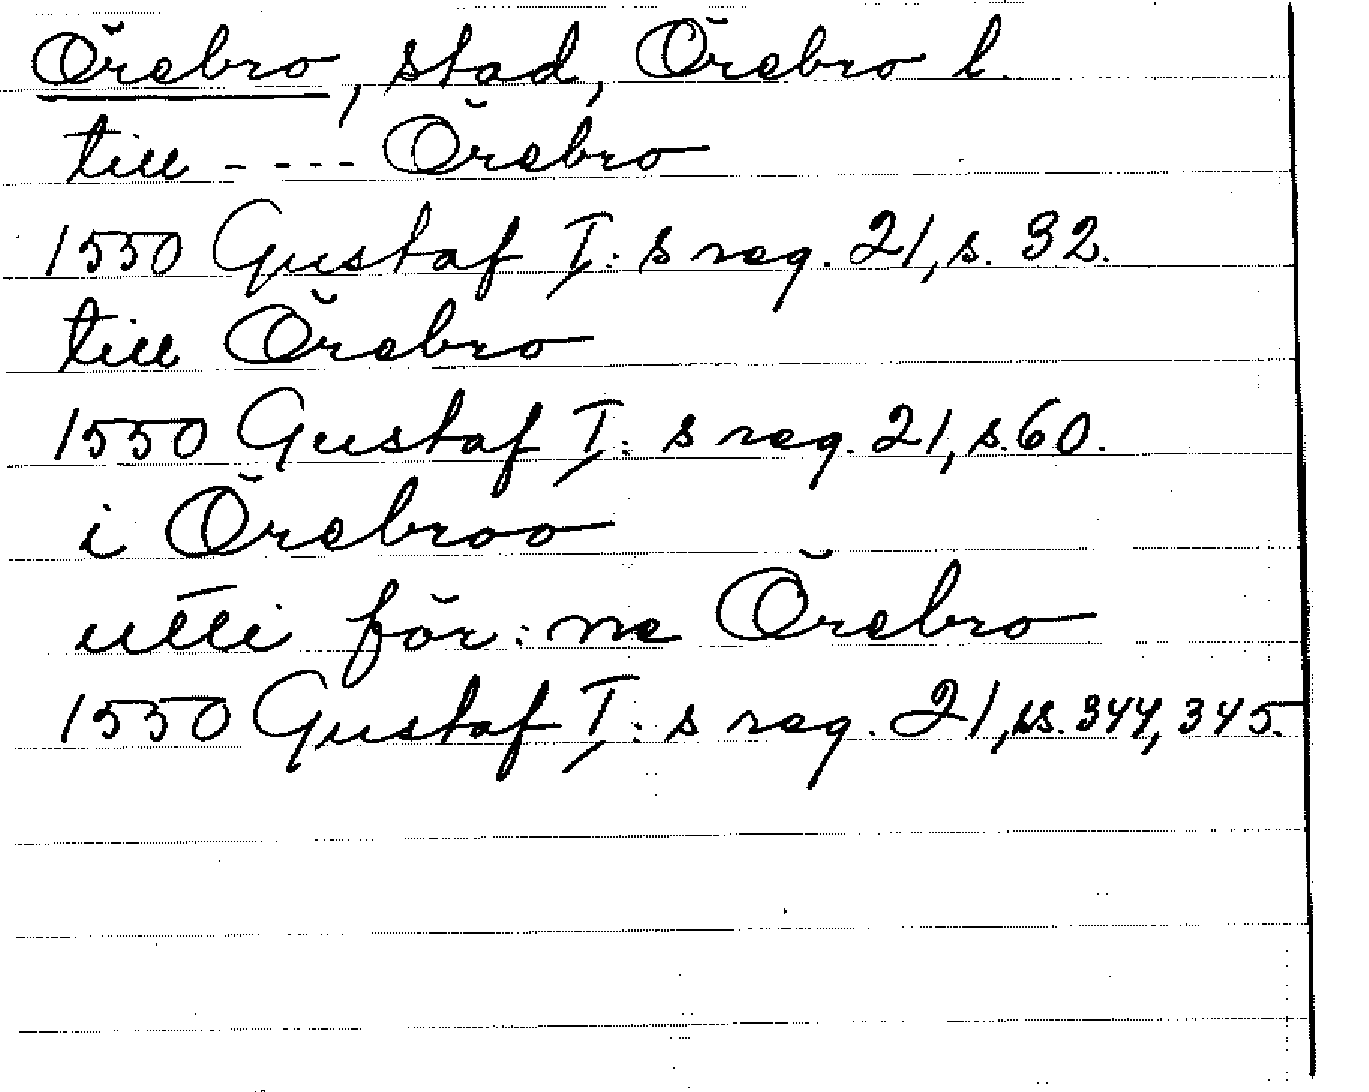 Örebro, stad, Örebro l.
till - - - - Örebro
1550 Gustaf I: s reg. 21, s. 32.
till Örebro
1550 Gustaf I: s reg. 21, s. 60.
i Örebroo
utti för: ne Örebro
1550 Gustaf I: s reg. 21, ss. 344, 345.